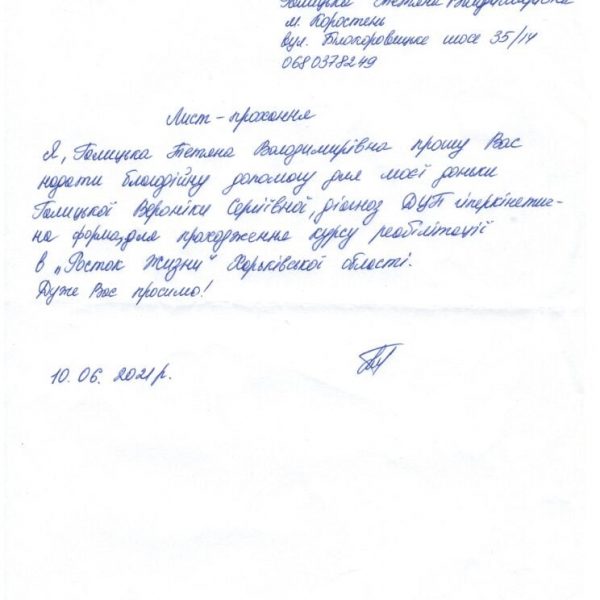 Галицька Тетяна Володимирівна
м. Коростень
вул. Білокоровицьке шосе 35/14
0680378249
Лист-прохання
Я, Галицька Тетяна Володимирівна прошу Вас
надати благодійну допомогу для моєї доньки
Галицької Вероніки Сергіївної, діагноз ДЦП гіперкінетич-
на форма, для проходження курсу реабілітації
в „Росток Жизни" Харьківської області.
Дуже Вас просимо!
10.06.2021р.